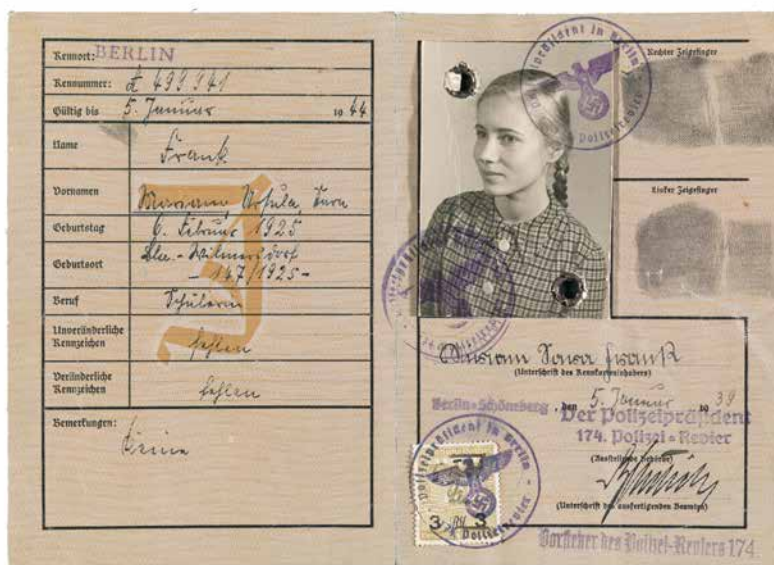 Kennort: BERLIN
Kennummer: A 499941
Gültig bis 5. Januar 1944
Name Frank
Vornamen Mariam, Ursula, Sara
Geburtstag 6. Februar 1925
Geburtsort Bln.-Wilmersdorf
- 147/1925 -
Beruf Schülerin
Unveränderliche
Kennzeichen fehlen
Veränderliche
Kennzeichen fehlen
Bemerkungen:
Keine
J
Rechter Zeigefinger
Linker Zeigefinger
Der Polizeipräsident in Berlin
Polizeirevier
Miriam Sara Frank
(Unterschrift des Kennkarteninhabers)
Berlin-Schöneberg, den 5. Januar 1939
Der Polizeipräsident
174. Polizei-Revier
(Ausstellende Behörde)
(Unterschrift des ausfertigenden Beamten)
Vorsteher des Polizei-Reviers 174
Polizeipräsident in Berlin
Polizeirevier
3 3